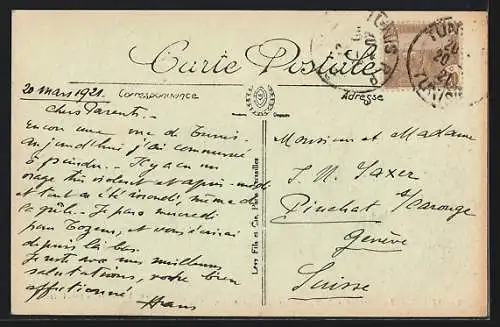 Carte Postale
Correspondance
Adresse
20 mars 1921.
Chers Parents.
Encore une vue de Tunis.
Aujourd'hui j'ai commencé
à peindre. Il y a eu un
orage très violent et après-midi
et tout a été inondé, même de
la grêle. Je pars mercredi
pour Tozeur, et vous écrirai
depuis là-bas.
Je vous avec mes meilleures
salutations, votre bien
affectionné
Hans
Monsieur et Madame
J. H. Saxer
Pinchat s/Carouge
Genève
Suisse
Lévy Fils et Cie, Paris
TUNIS R.P.
TUNIS